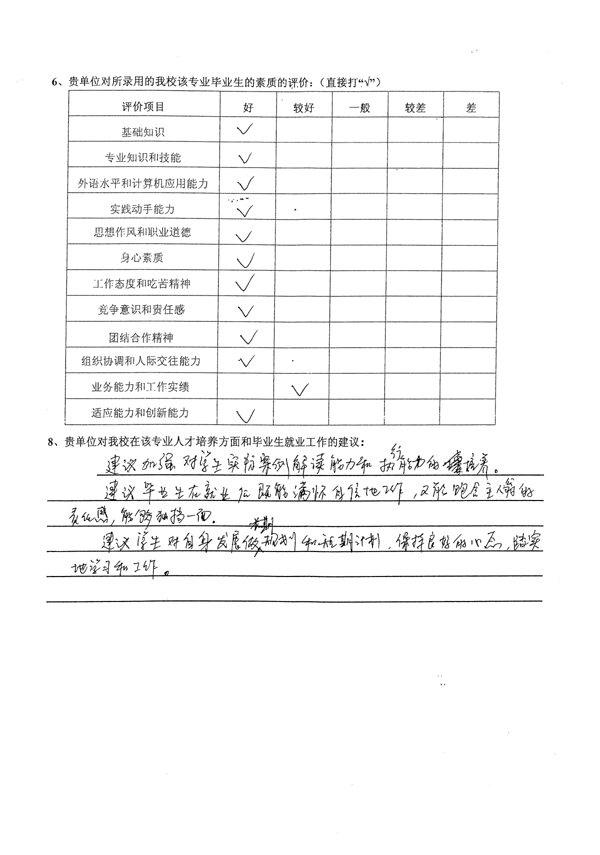 6、贵单位对所录用的我校该专业毕业生的素质的评价：（直接打“√”）
评价项目 好 较好 一般 较差 差
基础知识 √
专业知识和技能 √
外语水平和计算机应用能力 √
实践动手能力 √
思想作风和职业道德 √
身心素质 √
工作态度和吃苦精神 √
竞争意识和责任感 √
团结合作精神 √
组织协调和人际交往能力 √
业务能力和工作实绩 √
适应能力和创新能力 √
8、贵单位对我校在该专业人才培养方面和毕业生就业工作的建议：
建议加强对学生实际案例解读能力和执行能力的培养。
建议毕业生在就业后既能满怀自信地工作，又能饱含主人翁的
责任感，能够独挡一面。
建议学生对自身发展做长期规划和短期计划，保持良好的心态，踏实
地学习和工作。